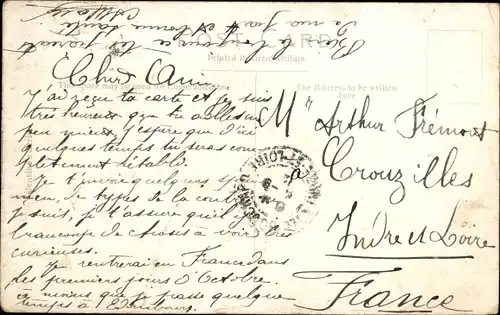 POST CARD
Printed in Great Britain
This space may be used for Communication
The Address to be written
here
Cher Ami
J'ai reçu ta carte et je suis
très heureux que tu ailles un
peu mieux. J'espère que d'ici
quelques temps tu seras com-
plètement rétabli.
Je t'envoie quelques spé-
men, de types de la contrée
je suis, je t'assure qu'il y a
beaucoup de choses à voir très
curieuses.
Je rentrerai en France dans
les premiers jours d'Octobre
à moins que je passe quelque
temps à Edimbourg.
Mr Arthur Frémont
à Crouzilles
Indre et Loire
France